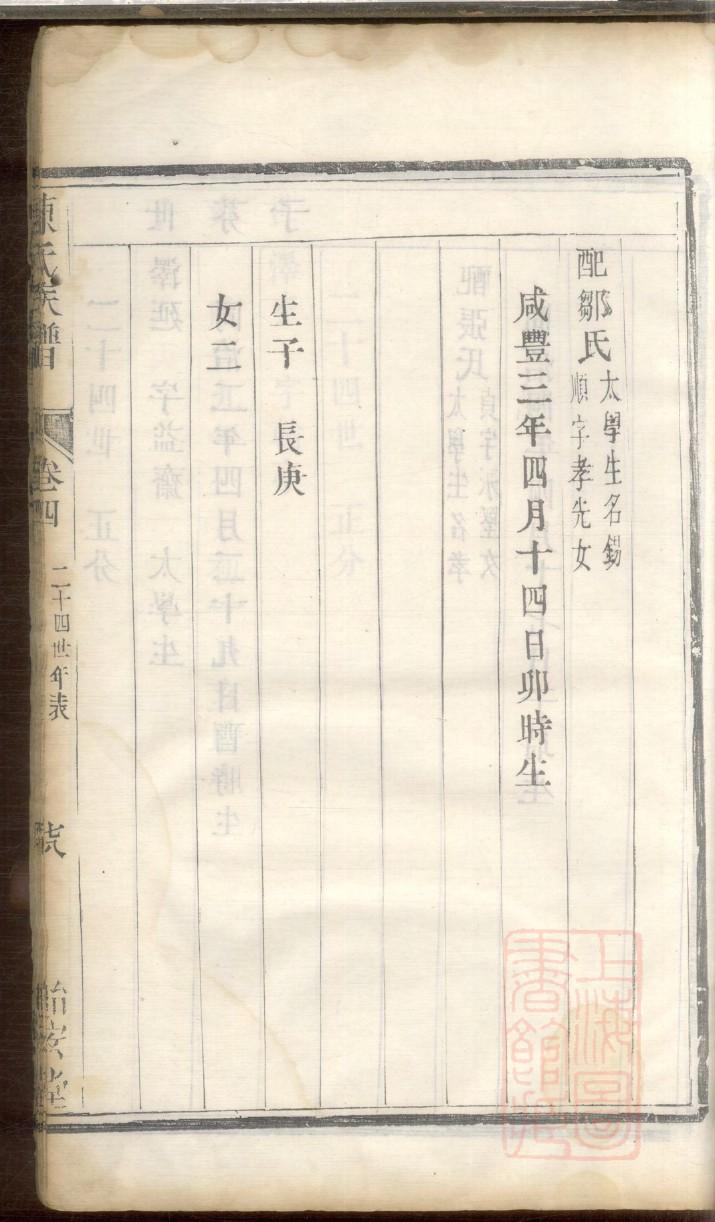 配鄒氏太學生名錫
順字孝先女
咸豐三年四月十四日卯時生
生子 長庚
女二
陳氏族譜 卷四 二十四世年表
上海圖書館藏